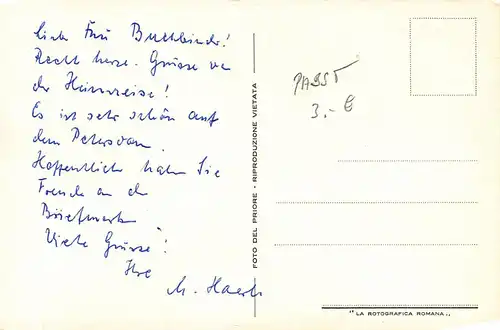 Liebe Frau Buchbinder!
Recht herz. Grüsse von
der Heimreise!
Es ist sehr schön auf
dem Petersdom.
Hoffentlich haben Sie
Freude an der
Briefmarke
Viele Grüsse!
Ihre
M.
FOTO DEL PRIORE - RIPRODUZIONE VIETATA
PABST
3.- €
"LA ROTOGRAFICA ROMANA"